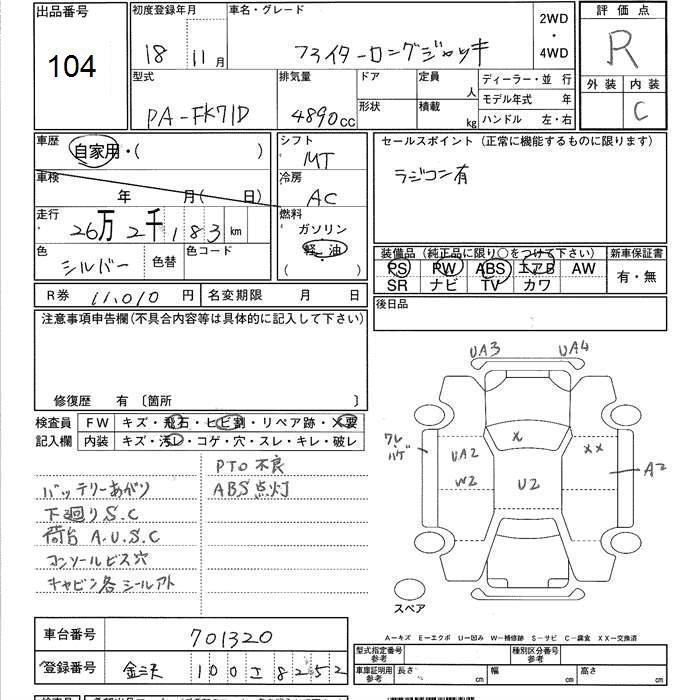 出品番号
104
初度登録年月
18年11月
車名・グレード
ファイターロングジャッキ
2WD
・
4WD
評価点
R
外装 内装
C
型式
PA-FK71D
排気量
4890cc
ドア
形状
定員
人
積載
kg
ディーラー・並 行
モデル年式 年
ハンドル 左・右
車歴
自家用・( )
車検
年 月( 日)
走行
26万2千183km
色
シルバー
色替
色コード
シフト
MT
冷房
AC
燃料
ガソリン
軽・油
( )
セールスポイント (正常に機能するものに限ります)
ラジコン有
装備品 (純正品に限り○をつけて下さい)
PS PW ABS エアB AW
SR ナビ TV カワ
新車保証書
有・無
R券 11,010 円
名変期限 月 日
後日品
注意事項申告欄(不具合内容等は具体的に記入して下さい)
修復歴 有 〔箇所 〕
検査員
記入欄
FW キズ・飛石・ヒビ割・リペア跡・X要
内装 キズ・汚レ・コゲ・穴・スレ・キレ・破レ
PTO不良
ABS点灯
バッテリーあがり
下廻りS.C
荷台A.U.S.C
コンソールビス穴
キャビン各シールアト
UA3 UA4
ワレ
ハゲ
UA2
W2
X
U2
XX
A2
スペア
A－キズ E－エクボ U－凹み W－補修跡 S－サビ C－腐食 XX－交換済
車台番号
701320
登録番号
100 8252
型式指定番号
参考
種別区分番号
参考
車庫証明用
参考
長さ cm
幅 cm
高さ cm